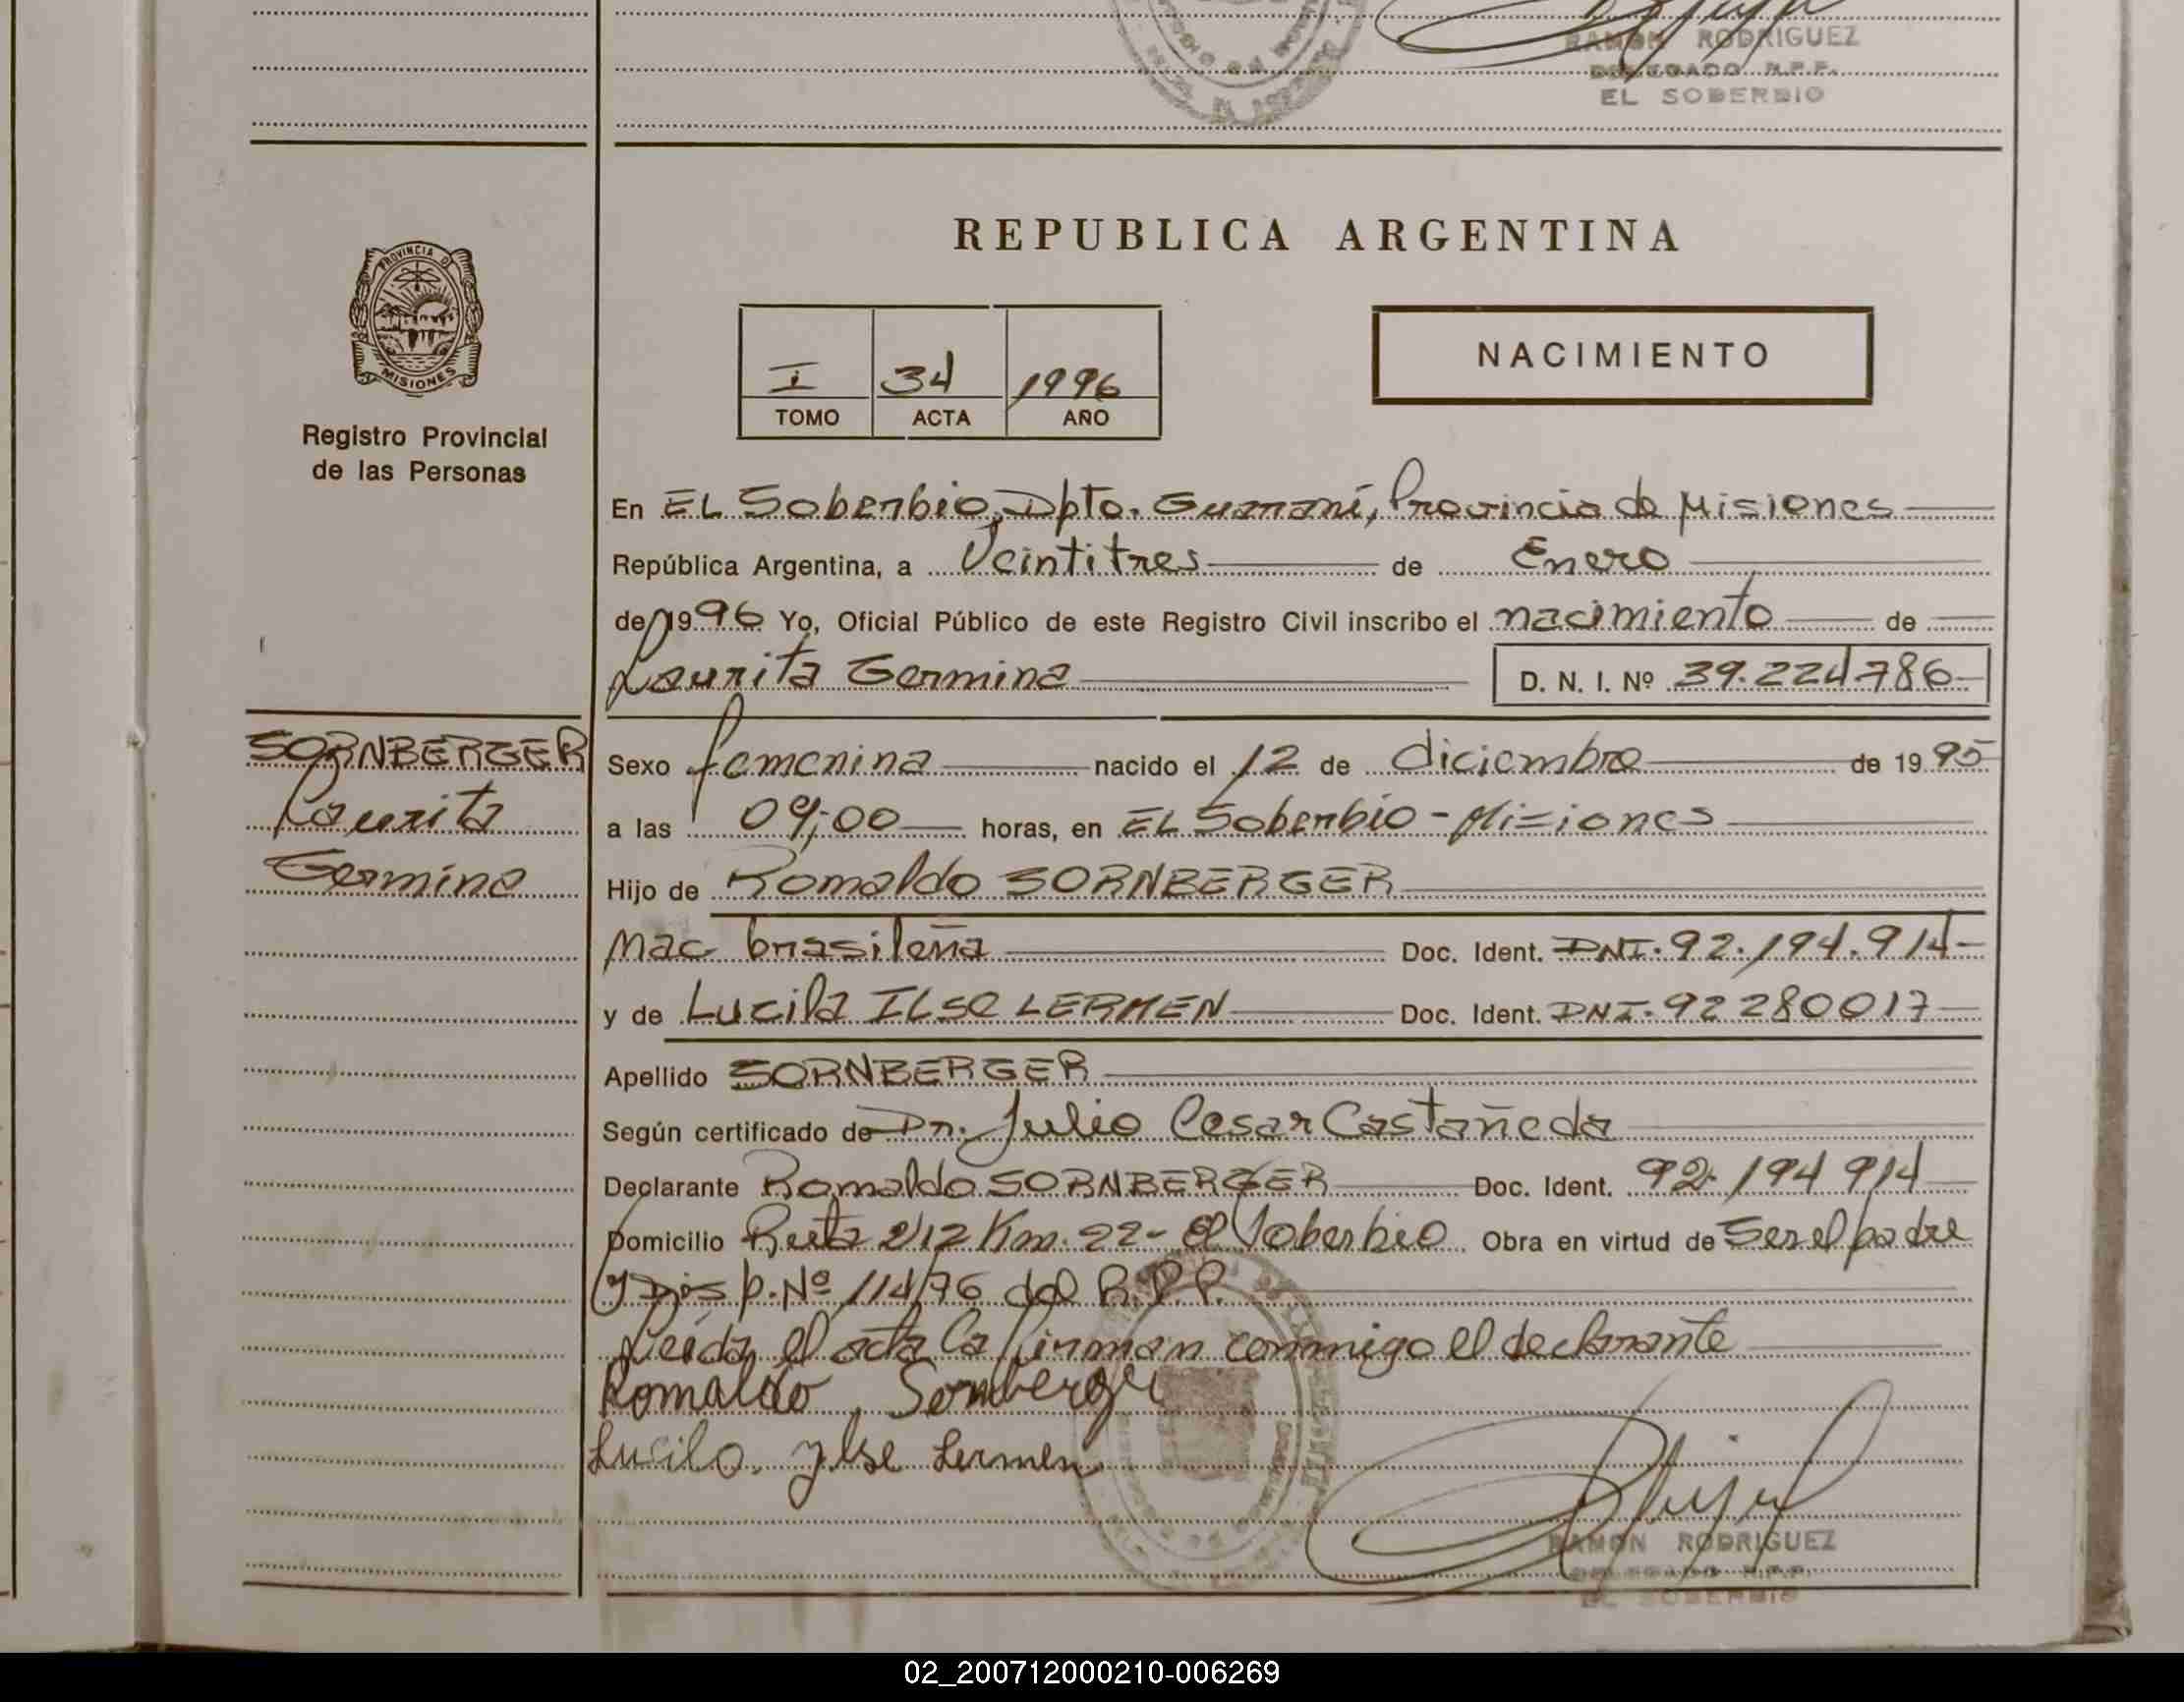 RAMON RODRIGUEZ
DELEGADO R.P.P.
EL SOBERBIO
REPUBLICA ARGENTINA
PROVINCIA D
MISIONES
Registro Provincial
de las Personas
I 34 1996
TOMO ACTA AÑO
NACIMIENTO
En EL Soberbio, Dpto. Guaraní, Provincia de Misiones
República Argentina, a Veintitres de Enero
de 1996 Yo, Oficial Público de este Registro Civil inscribo el nacimiento de
Laurita Germina D. N. I. Nº 39.224786
SORNBERGER
Laurita
Germina
Sexo femenina nacido el 12 de diciembre de 1995
a las 09;00 horas, en EL Soberbio - Misiones
Hijo de Romaldo SORNBERGER
Nac brasileña Doc. Ident. DNI. 92.194.914
y de Lucila ILSe LERMEN Doc. Ident. DNI. 92 280017
Apellido SORNBERGER
Según certificado de Dr. Julio Cesar Castañeda
Declarante Romaldo SORNBERGER Doc. Ident. 92. 194 914
Domicilio Ruta 212 Km. 22 - El Soberbio Obra en virtud de Ser el padre
y Disp. Nº 114/76 del R.P.P.
Leída el acta la firman conmigo el declarante
Romaldo Sornberger
Lucila ylse Lermen
RAMON RODRIGUEZ
DELEGADO R.P.P.
EL SOBERBIO
02_200712000210-006269